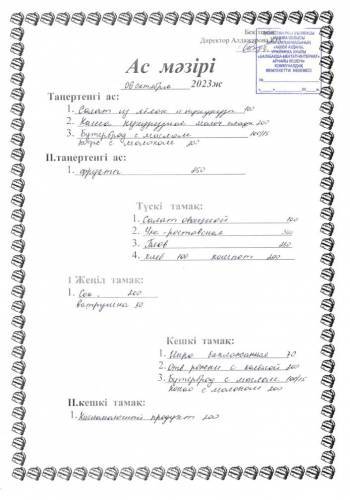 Бекітемін
Директор
Ас мәзірі
06 октябрь 2023ж
Таңертеңгі ас:
1. Салат из яблок и кукурузы 100
2. Каша кукурузная молоч 200
3. Бутерброд с маслом
Кофе с молоком 200
II.таңертеңгі ас:
1. фрукты 250
Түскі тамақ:
1. Салат овощной 100
2. Уха-ростовская
3. Плов
4. хлеб 100 компот 200
1 Жеңіл тамақ:
1. Сок. 200
ватрушка 50
Кешкі тамақ:
1. Икра баклажанная 70
2. Отв рожки с колбасой 200
3. Бутерброд с маслом
Какао с молоком 200
II.кешкі тамақ:
1. Кисломолочный продукт 200